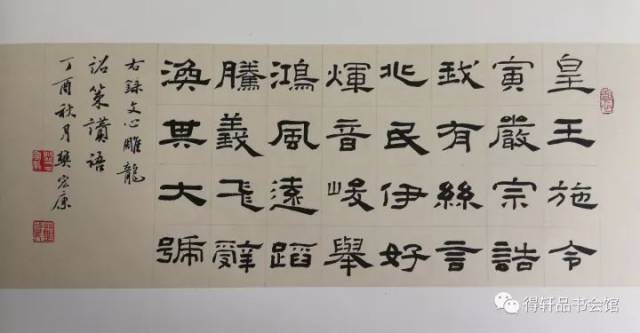 皇王施令
寅嚴宗誥
我有絲言
兆民伊好
煇音峻舉
鴻風遠蹈
騰義飛辭
渙其大號
右録文心雕龍
詔策讚語
丁酉秋月樊宏康
得轩品书会馆